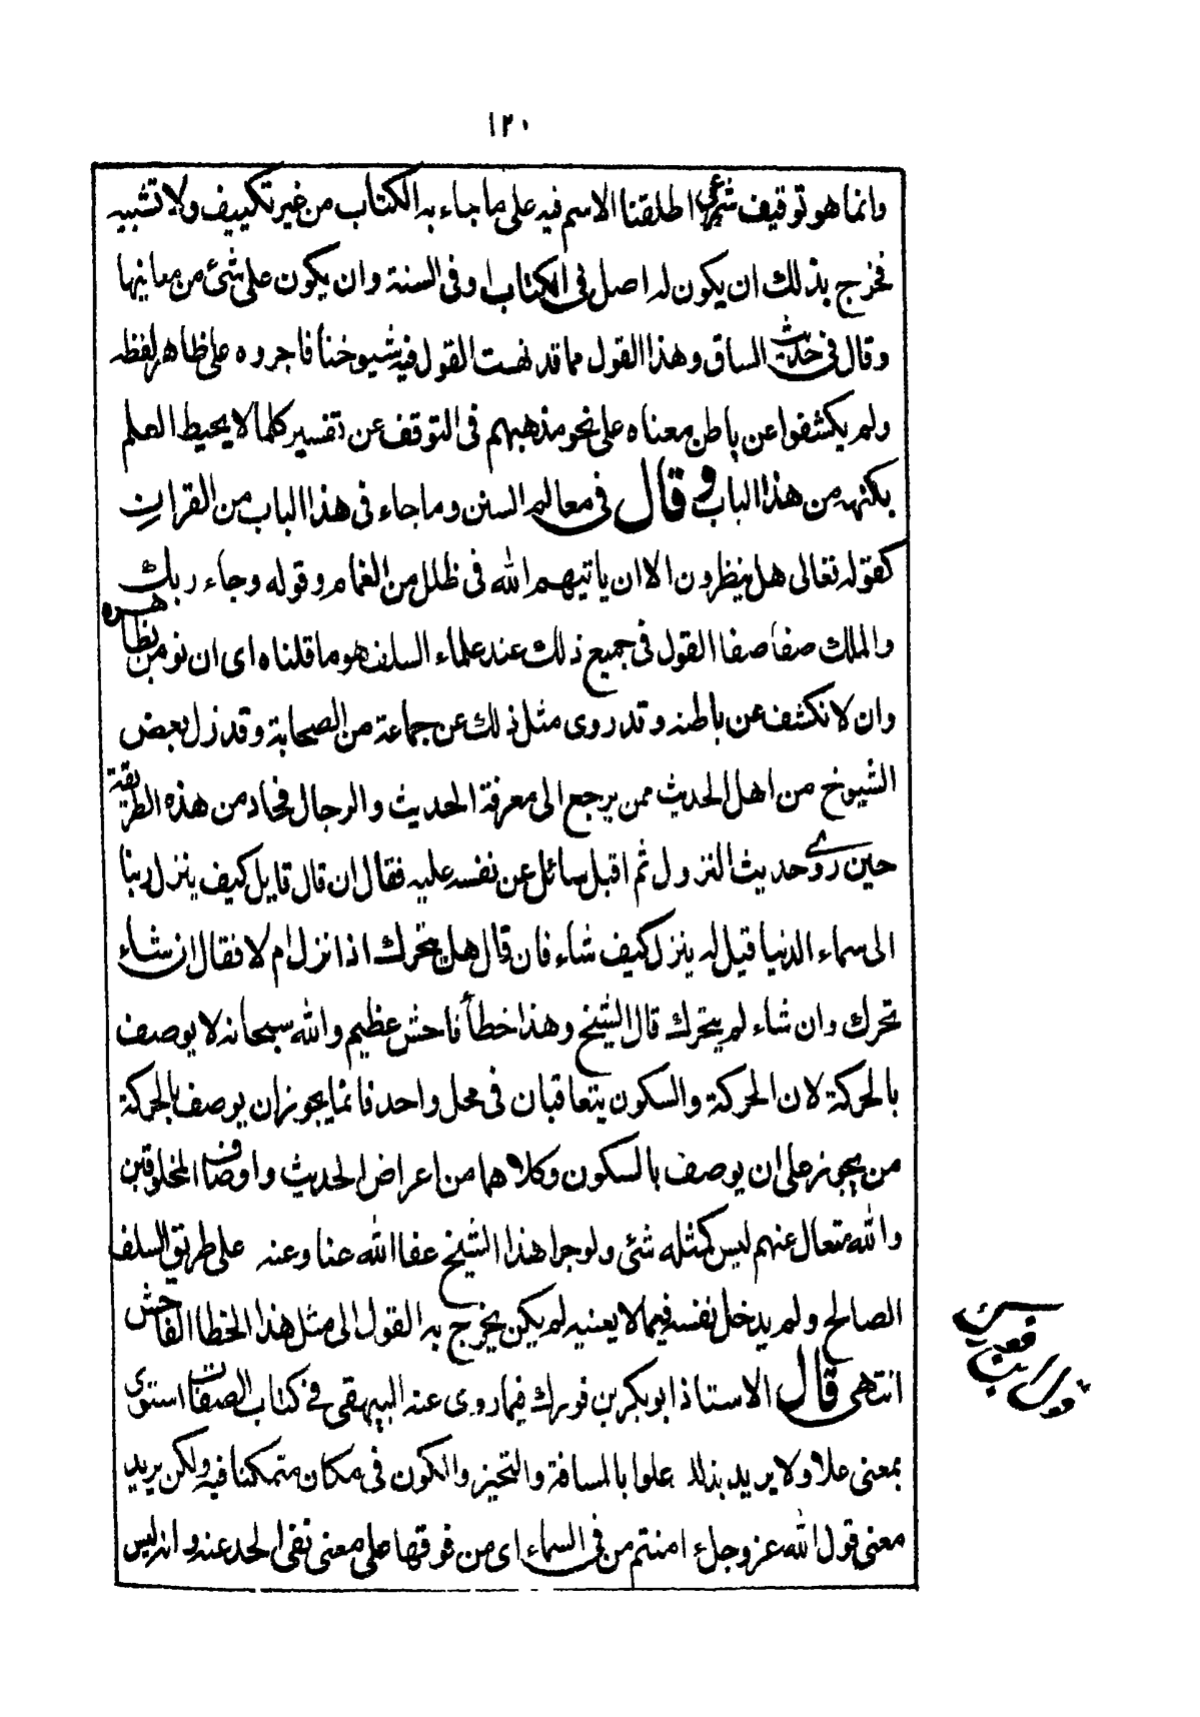 ١٢٠
وانما هو توقيف شرعى اطلقنا الاسم فيه على ما جاء به الكتاب من غير تكييف ولا تشبيه
فخرج بذلك ان يكون له اصل فى الكتاب او فى السنة وان يكون على شئ من معانيها
وقال فى حديث الساق وهذا القول مما قد تهيت القول فيه شيوخنا فاجروه على ظاهر لفظه
ولم يكشفوا عن باطن معناه على نحو مذهبهم فى التوقف عن تفسير كلما لا يحيط العلم
بكنهه من هذا الباب وقال فى معالم السنن وما جاء فى هذا الباب من القران
كقوله تعالى هل ينظرون الا ان ياتيهم الله فى ظلل من الغمام وقوله وجاء ربك
والملك صفا صفا القول فى جميع ذلك عند علماء السلف هو ما قلناه اى ان نومن بظاهره
وان لا نكشف عن باطنه وقد روى مثل ذلك عن جماعة من الصحابة وقد زل بعض
الشيوخ من اهل الحديث ممن يرجع الى معرفة الحديث والرجال فحاد من هذه الطريقة
حين روى حديث النزول ثم اقبل سائل عن نفسه عليه فقال ان قال قايل كيف ينزل ربنا
الى سماء الدنيا قيل له ينزل كيف شاء فان قال هل يتحرك اذا نزل ام لا فقال ان شاء
تحرك وان شاء لم يتحرك قال الشيخ وهذا خطأ فاحش عظيم والله سبحانه لا يوصف
بالحركة لان الحركة والسكون يتعاقبان فى محل واحد فانما يجوز ان يوصف بالحركة
من يجوز على ان يوصف بالسكون وكلاهما من اعراض الحديث واوصاف المخلوقين
والله متعال عنهم ليس كمثله شئ ولو جرا هذا الشيخ عفا الله عنا وعنه على طريق السلف
الصالح ولم يدخل نفسه فيما لا يعنيه لم يكن يخرج به القول الى مثل هذا الخطا الفاحش
انتهى قال الاستاذ ابو بكر بن فورك فيما روى عنه البيهقى فى كتاب الصفات استوى
بمعنى علا ولا يريد بذلك علوا بالمسافة والتحيز والكون فى مكان متمكنا فيه ولكن يريد
معنى قول الله عز وجل ء امنتم من فى السماء اى من فوقها على معنى نفى الحد عنه وانه ليس
قول ابن فورك